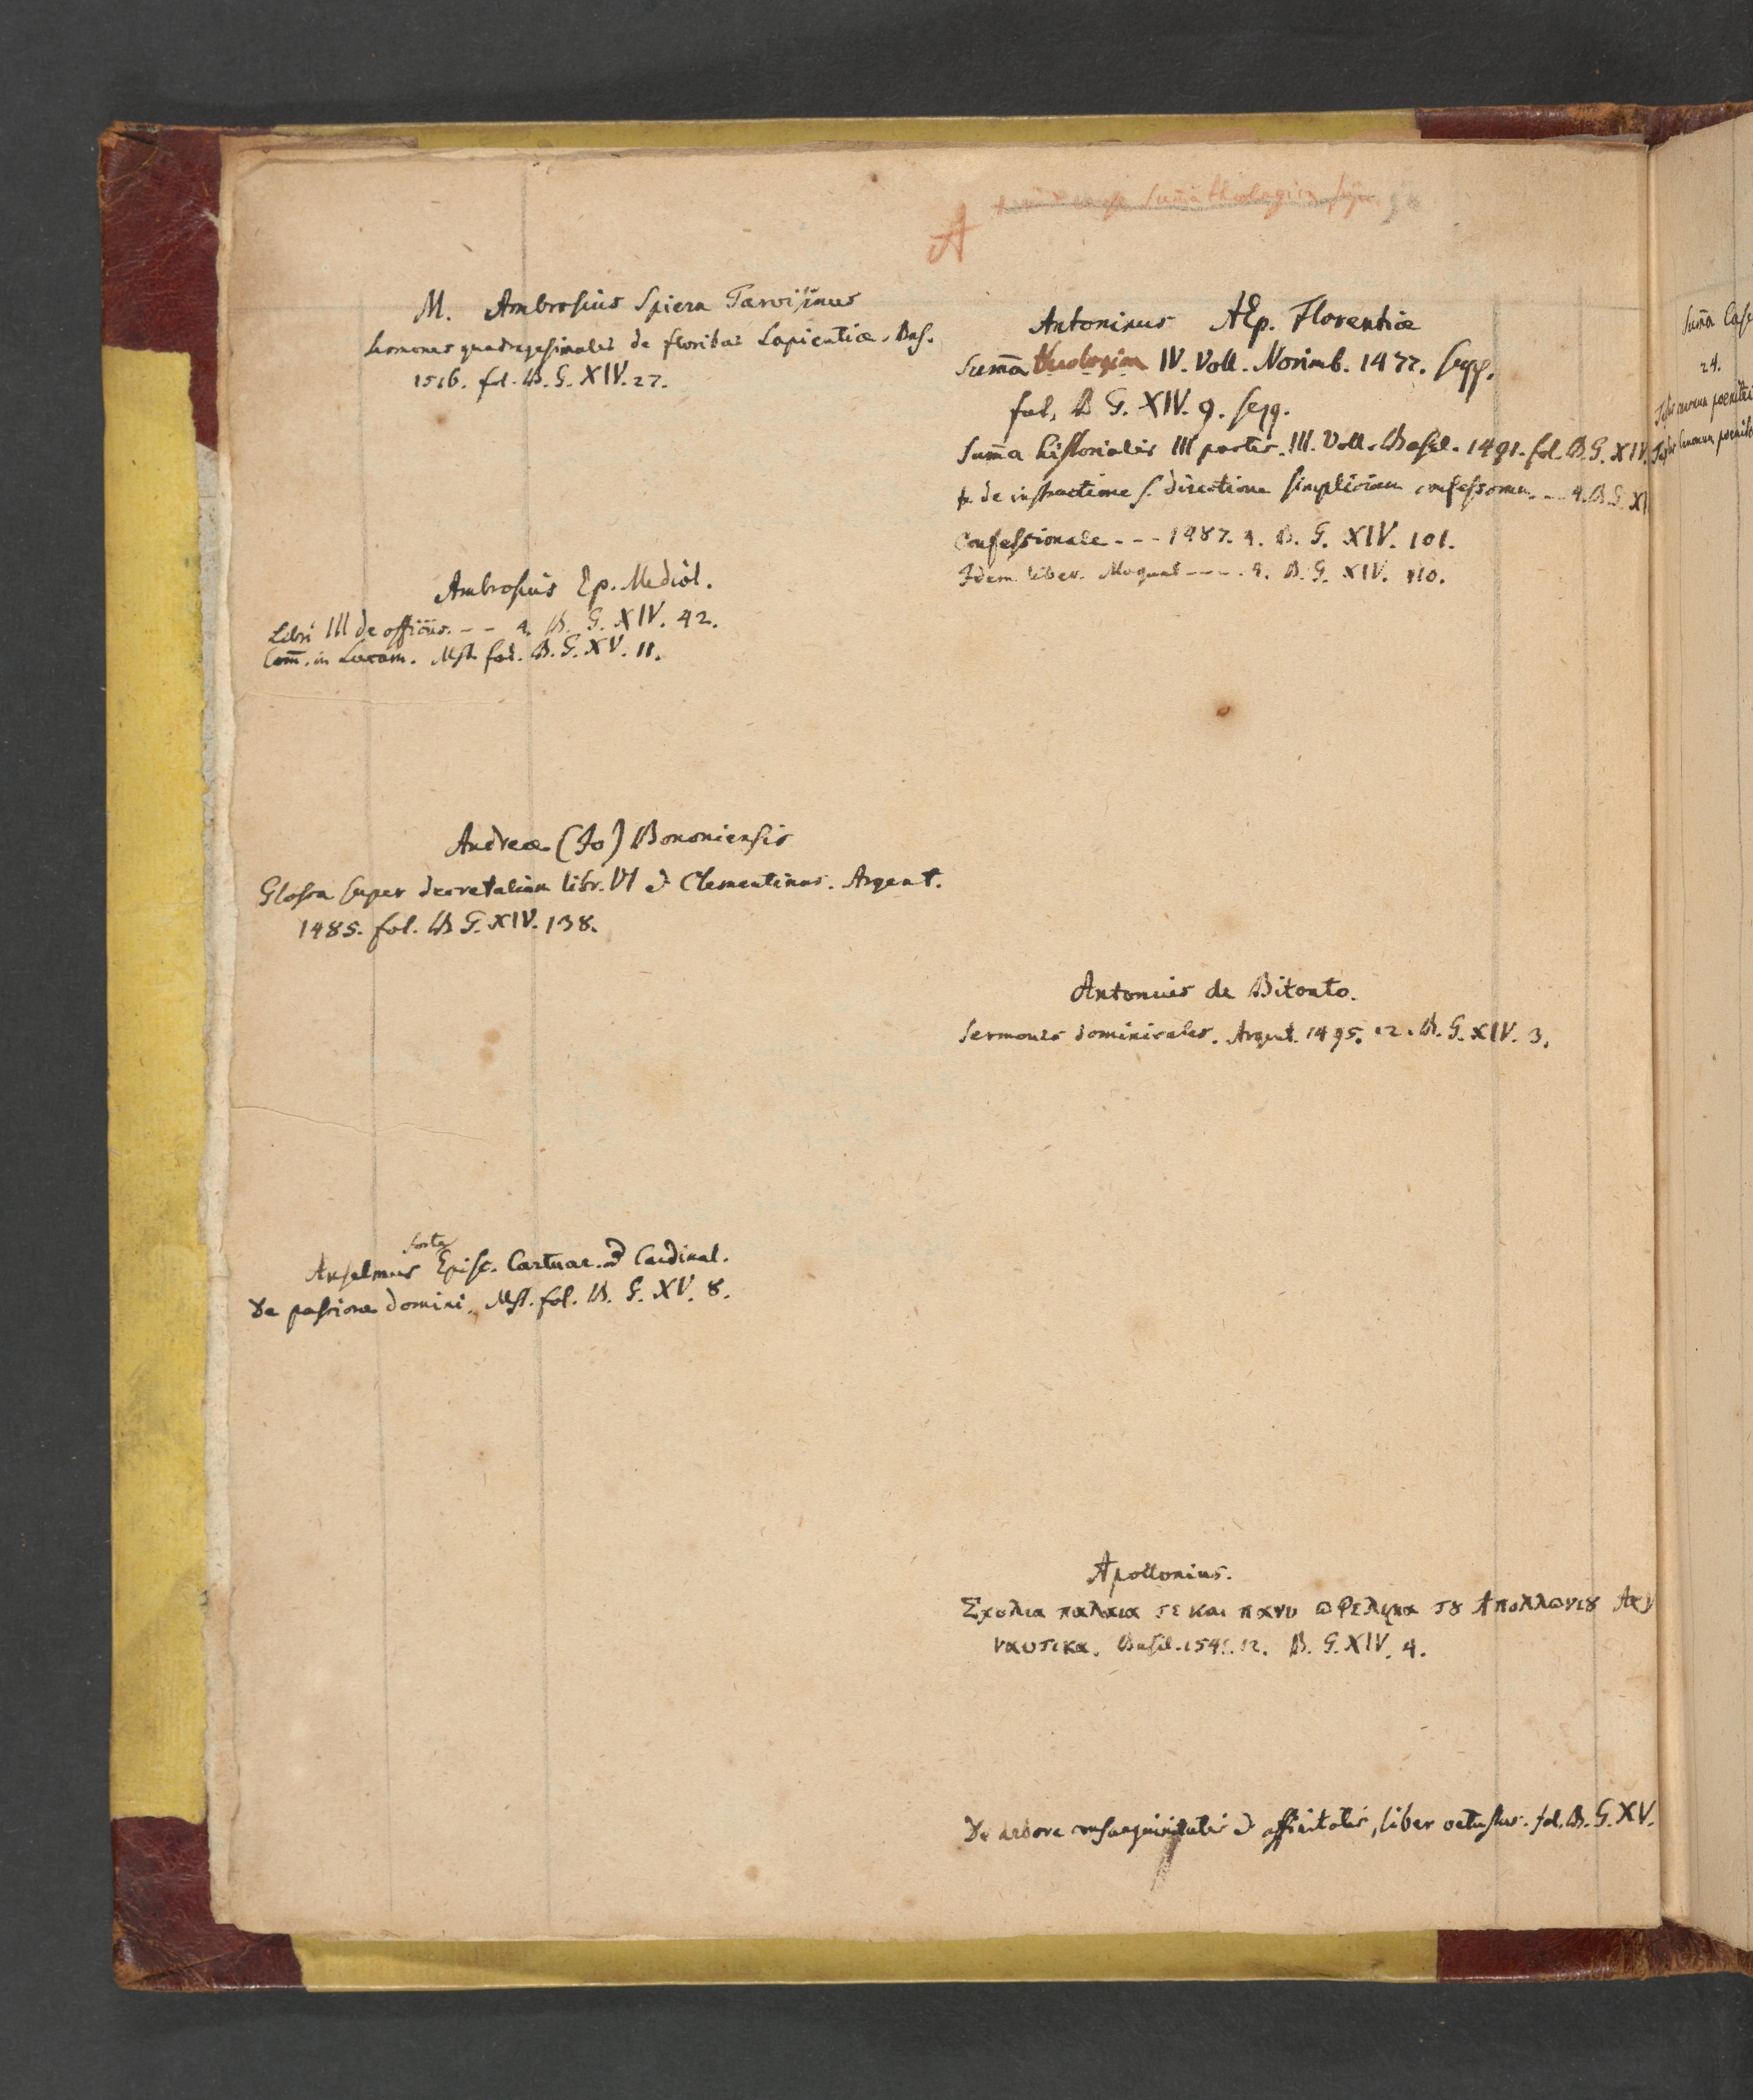 Summa theologica
A
M. Ambrosius Spiera Tarvisinus
Sermones quadragesimales de floribus Sapientiæ. Bas.
1516. fol. B. G. XIV. 27.
Ambrosius Ep. Mediol.
Libri III de officiis. - - 4. B. G. XIV. 42.
Com̅. in Lucam. Mst. fol. B. G. XV. 11.
Andreæ (Jo) Bononiensis
Glossa super decretalium libr. VI et Clementinas. Argent.
1485. fol. B G. XIV. 138.
forte
Anselmus Episc. Cartuar. et Cardinal.
De passione domini. Mst. fol. B. G. XV. 8.
Antoninus AEp. Florentiæ
Sum̅a theologica IV. Voll. Norimb. 1477. seqq.
fol. B G. XIV. 9. seqq.
Sum̅a historialis III partes. III. Voll. Basil. 1491. fol. B. G. XIV.
de instructione s. directione simplicium confessorum - - 4. B. G. XI
Confessionale - - - 1487. 4. B. G. XIV. 101.
Idem liber. Mogunt - - - . 4. B. G. XIV. 110.
Antonius de Bitonto.
Sermones dominicales. Argent. 1495. 12. B. G. XIV. 3.
Apollonius.
Σχολια παλαια τε και πανυ ωφελιμα τȣ Απολλωνιȣ Αργ
ναυτικα. Basil. 1541. 12. B. G. XIV. 4.
De arbore consanguinitatis et affinitatis, liber vetustus. fol. B. G. XV.
Sum̅a Cas
24.